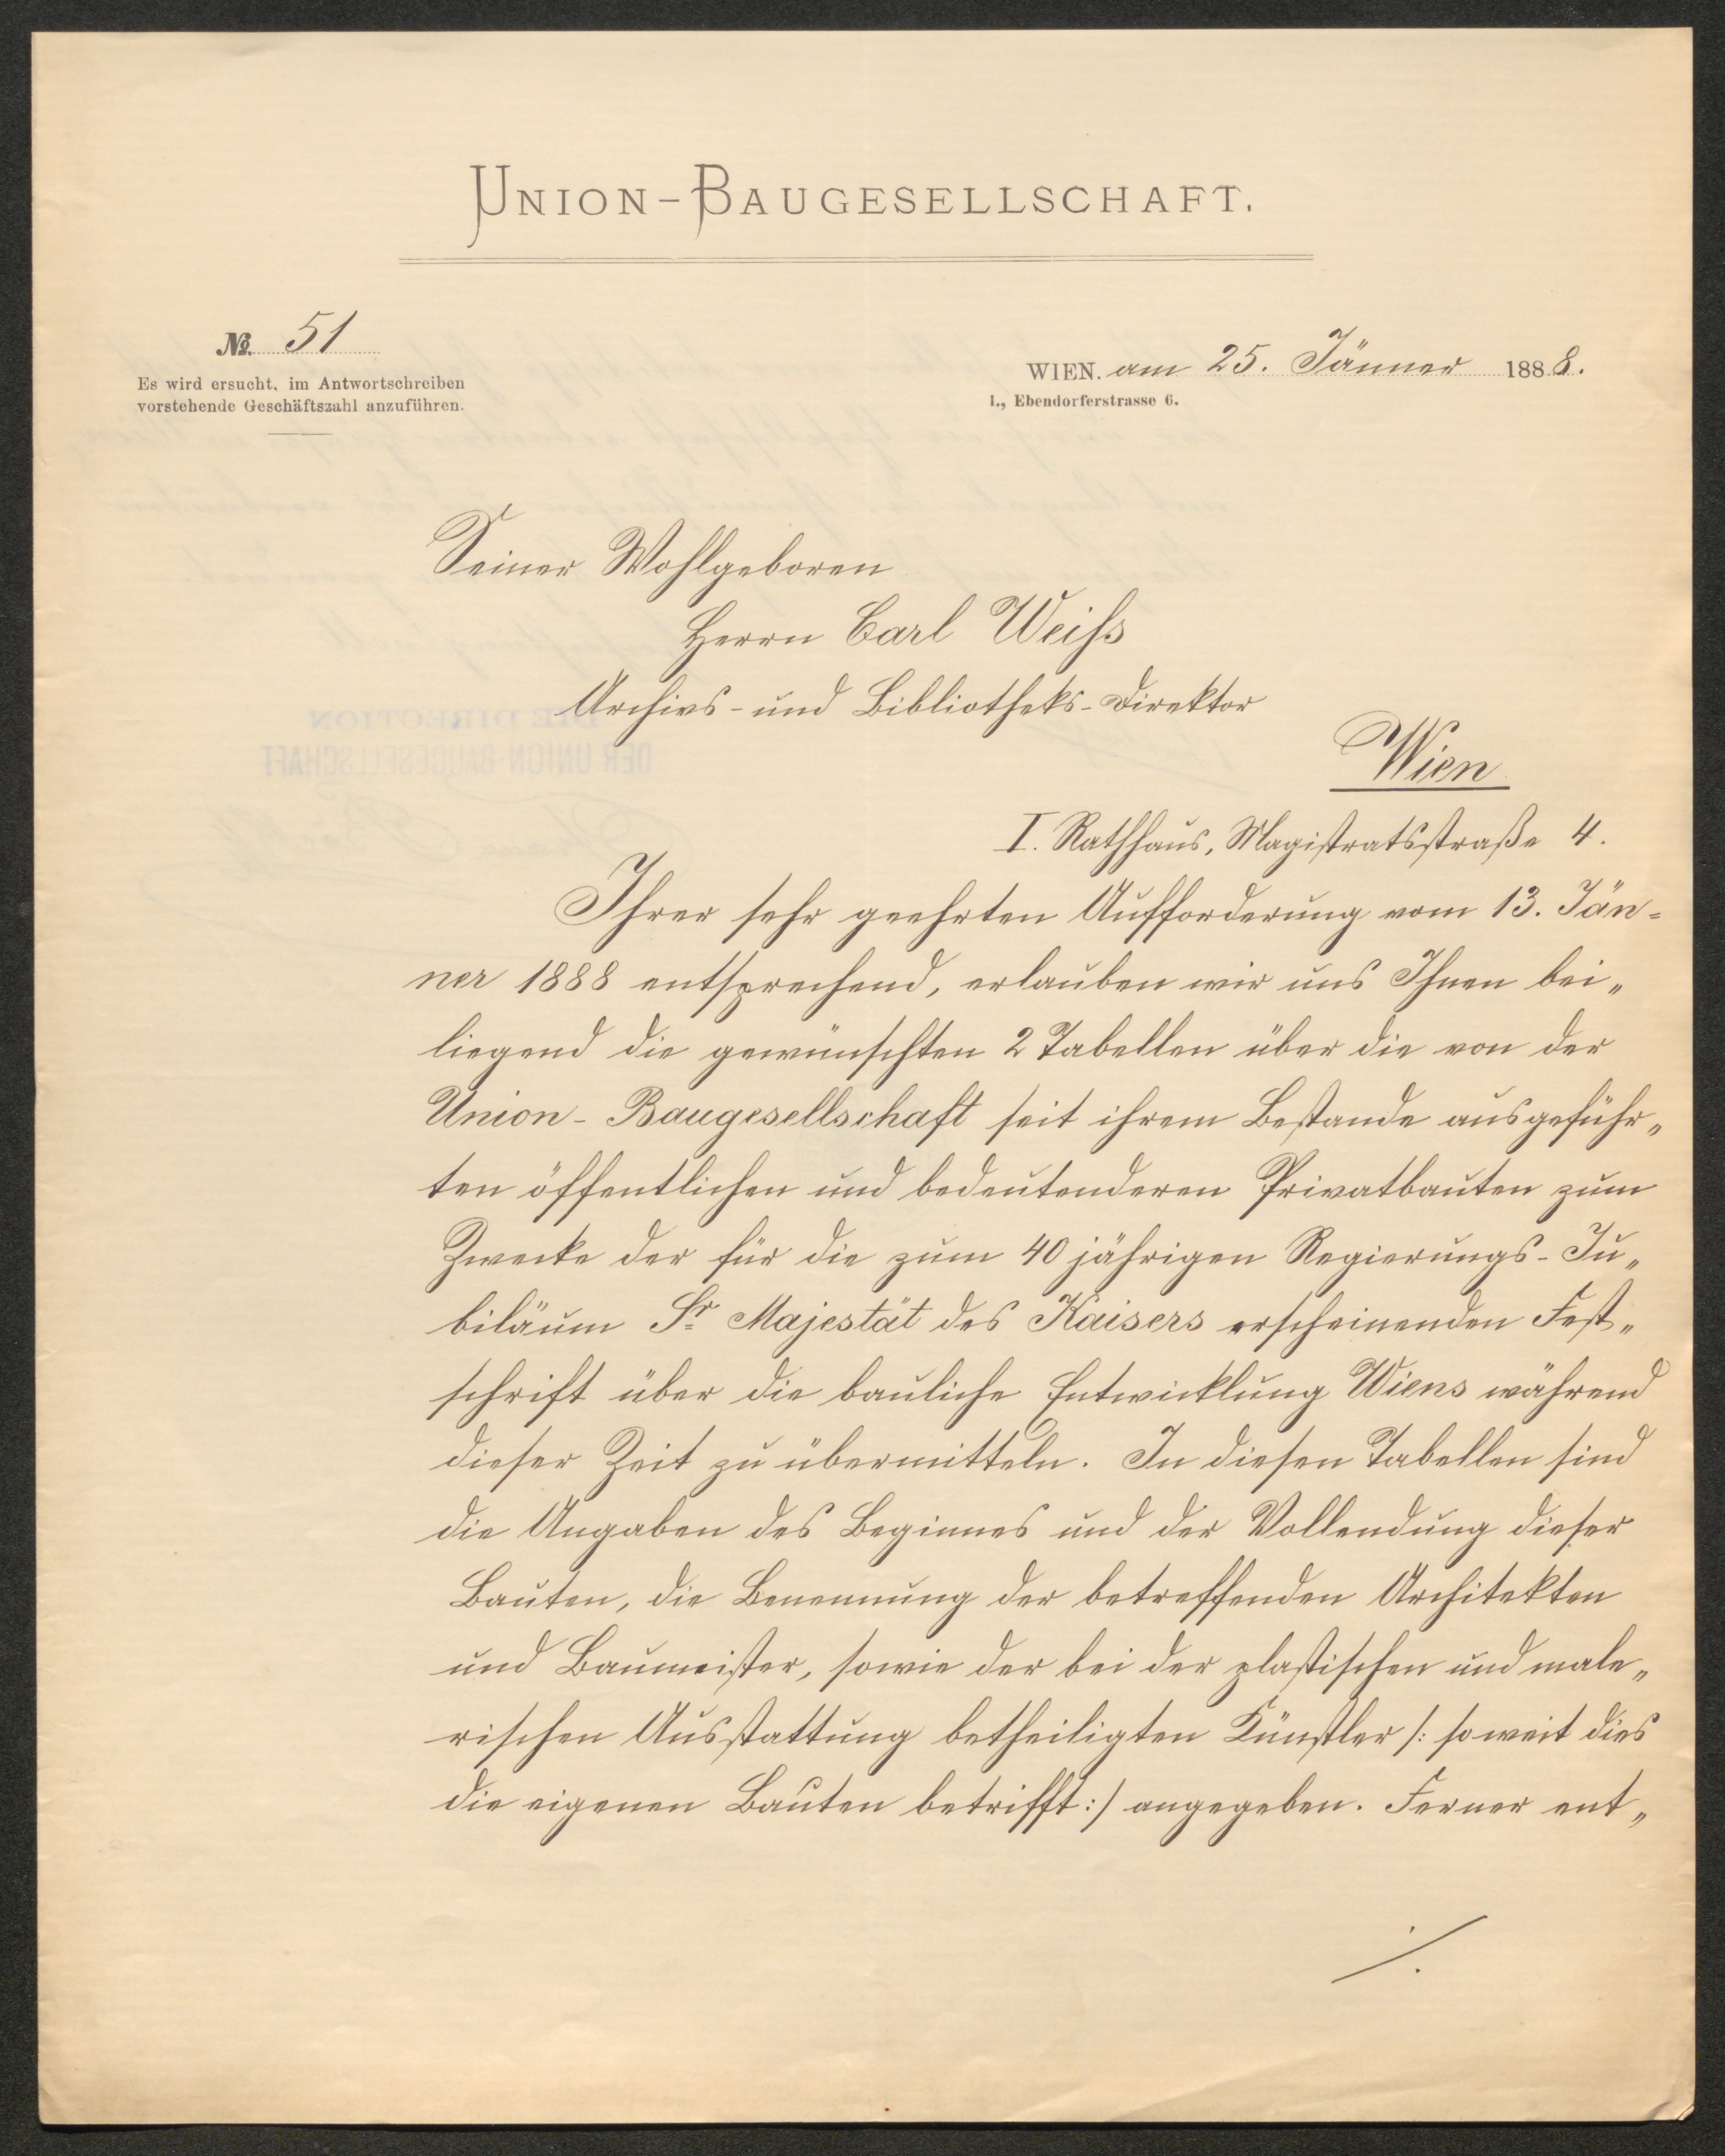 UNION-BAUGESELLSCHAFT.
No. 51
Es wird ersucht, im Antwortschreiben
vorstehende Geschäftszahl anzuführen.
WIEN. am 25. Jänner 1888.
I., Ebendorferstrasse 6.
Seiner Wohlgeboren
Herrn Carl Weiſs
Archivs- und Bibliotheks-Direktor
Wien
I. Rathhaus, Magistratsstraße 4.
Ihrer sehr geehrten Aufforderung vom 13. Jän=
ner 1888 entsprechend, erlauben wir uns Ihnen bei„
liegend die gewünschten 2 Tabellen über die von der
Union-Baugesellschaft seit ihrem Bestande ausgeführ„
ten öffentlichen und bedeutenderen Privatbauten zum
Zwecke der für die zum 40 jährigen Regierungs-Ju„
biläum Sr. Majestät des Kaisers erscheinenden Fest„
schrift über die bauliche Entwicklung Wiens während
dieser Zeit zu übermitteln. In diesen Tabellen sind
die Angaben des Beginnes und der Vollendung dieser
Bauten, die Benennung der betreffenden Architekten
und Baumeister, sowie der bei der plastischen und male„
rischen Ausstattung betheiligten Künstler /: soweit dies
die eigenen Bauten betrifft :/ angegeben. Ferner ent„
./.